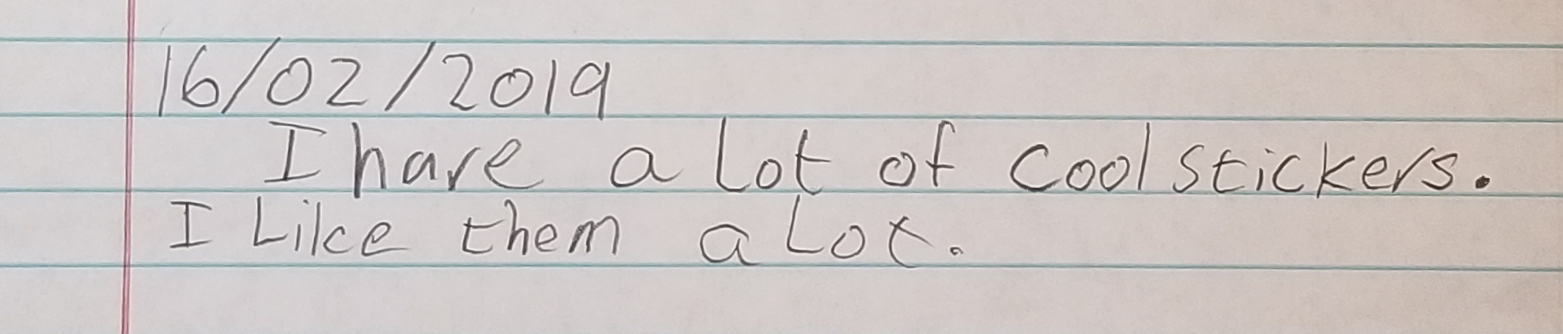 16/02/2019
I have a lot of cool stickers.
I Like them a Lot.